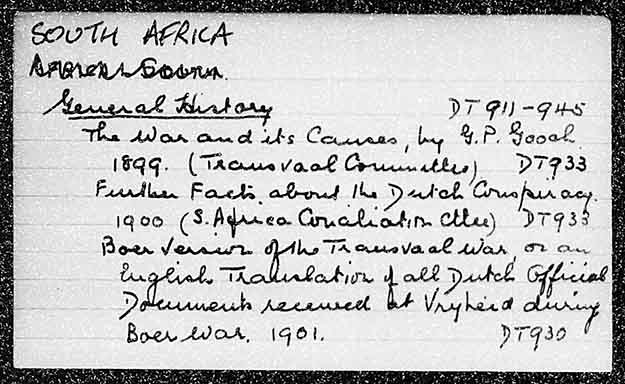 SOUTH AFRICA
General History DT 911-945
The War and its Causes, by G.P. Gooch.
1899. (Transvaal Committee) DT933
Further Facts about the Dutch Conspiracy.
1900 (S. Africa Conciliation Cttee) DT933
Boer Version of the Transvaal War, or an
English Translation of all Dutch Official
Documents received at Vryheid during
Boer War. 1901. DT930